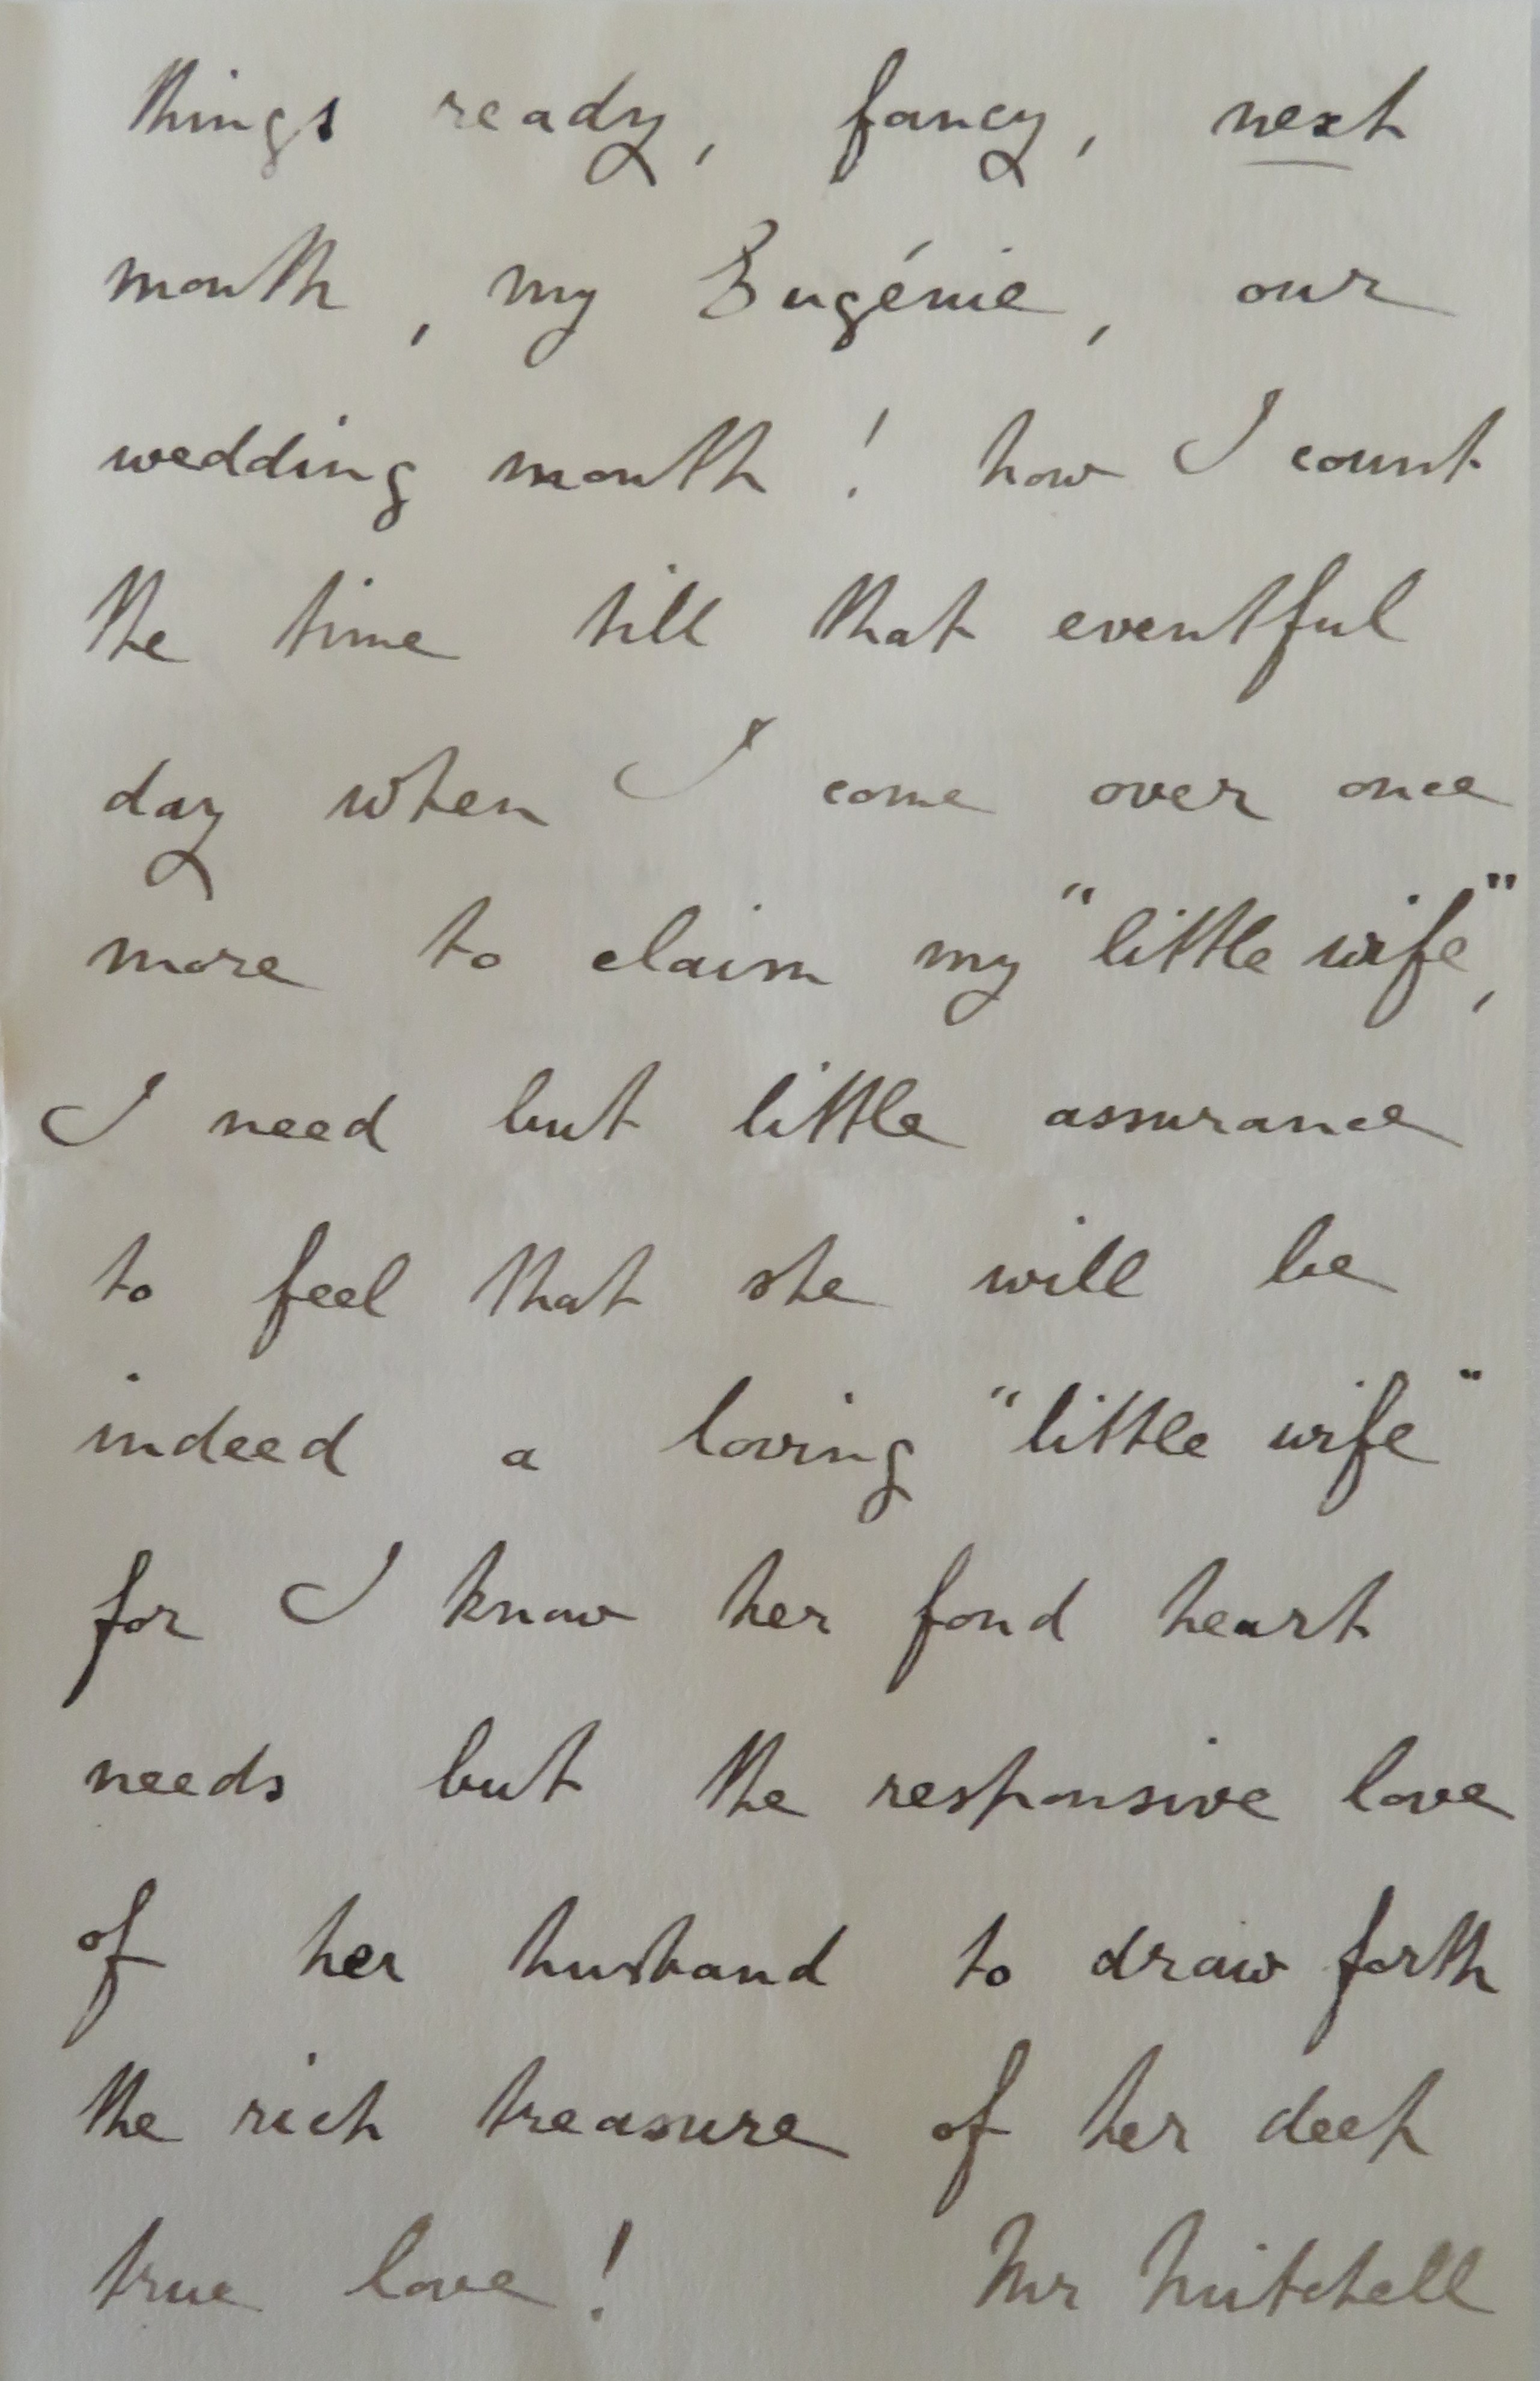 things ready, fancy, next
month, my Eugénie, our
wedding month! how I count
the time till that eventful
day when I come over once
more to claim my "little wife",
I need but little assurance
to feel that she will be
indeed a loving "little wife"
for I know her fond heart
needs but the responsive love
of her husband to draw forth
the rich treasure of her deep
true love! Mr Mitchell